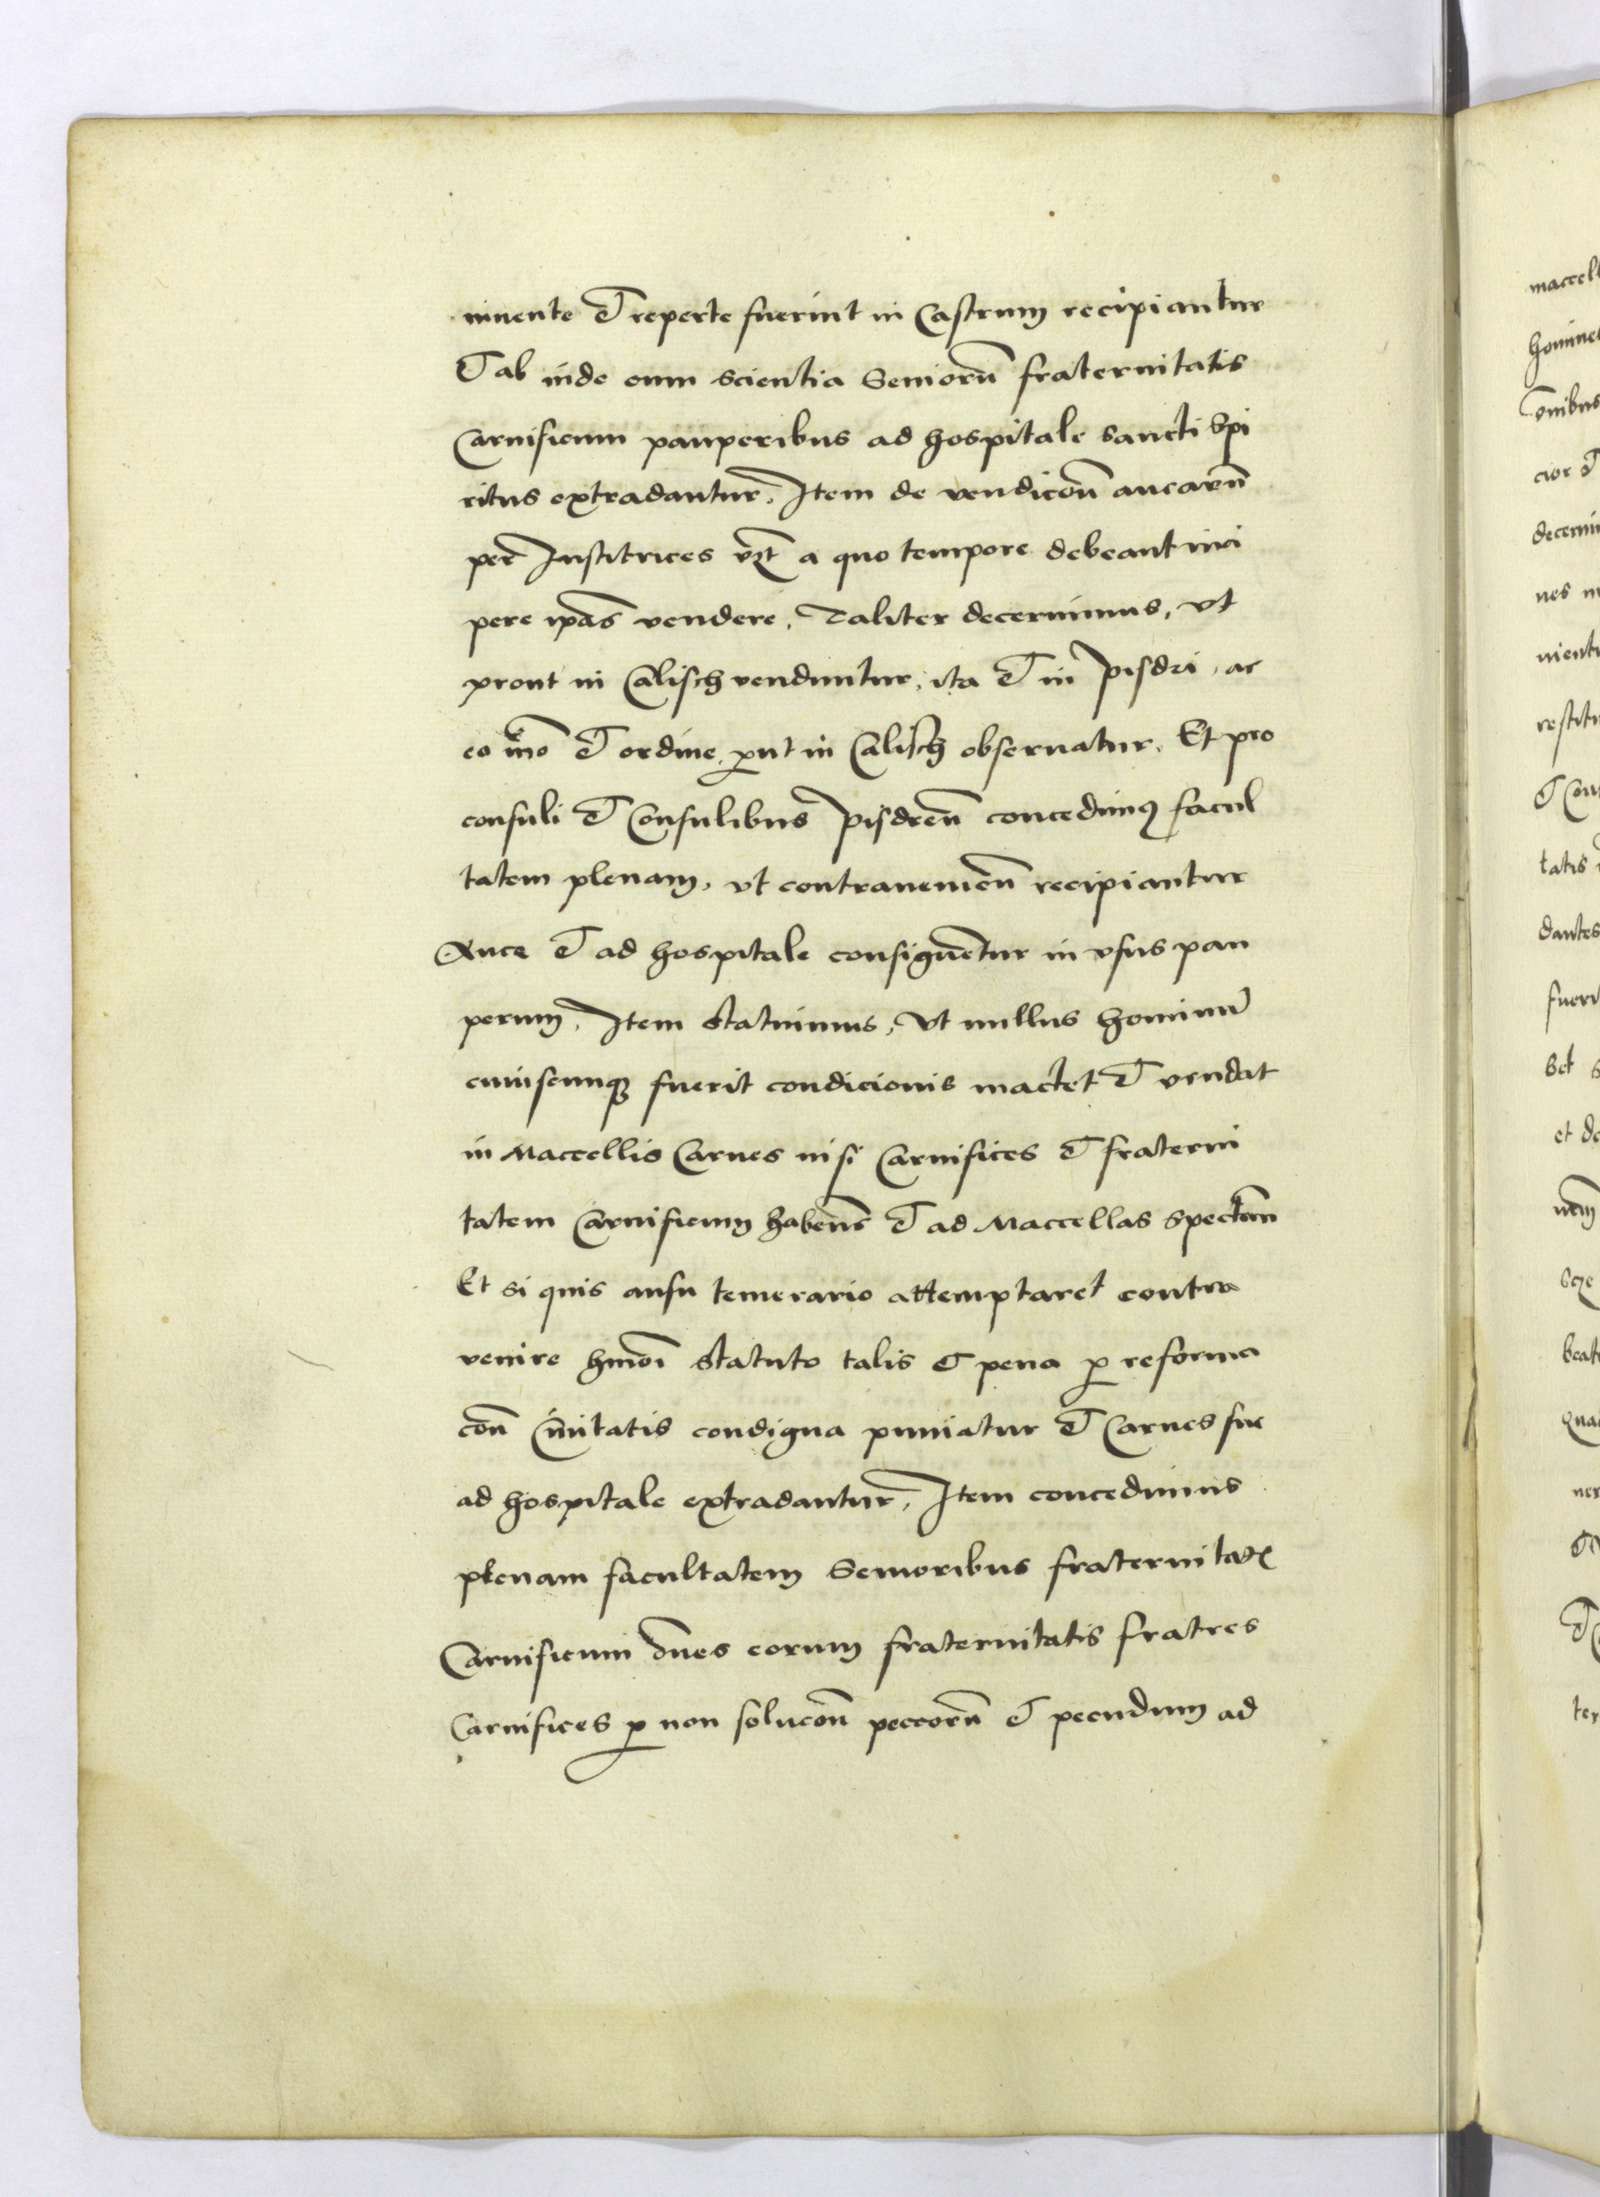 invente & reperte fuerint in Castrum recipiantur
& ab inde cum scientia Seniorū fraternitatis
Carnificum pauperibus ad hospitale sancti Spi
ritus extradantur, Item de vendicōn aucarū
per Institrices vzt a quo tempore debeant inci
pere ipās vendere, Taliter decernimus, vt
prout in Calisch venduntur, ita & in pisdri, ac
eo mo & ordine, put in Calisch obseruatur, Et pro
consuli & Consulibus pisdreñ concedimus facul
tatem plenam, vt contraveniēn recipiantur
Auce & ad hospitale consignentur in vsus pau
perum, Item statuimus, Vt nullus hominum
cuiuscunqz fuerit condicionis mactet & vendat
in Maccellis Carnes nisi Carnifices & fraterni
tatem Carnificum habens & ad Maccellas spectañ
Et si quis ausu temerario attemptaret contra
venire hmōi statuto talis & pena p reforma
coñ Cīuitatis condigna puniatur & Carnes sue
ad hospitale extradantur, Item concedimus
plenam facultatem Senioribus fraternitatis
Carnificum ōnes eorum fraternitatis fratres
Carnifices p non solucoñ peccorū & pecudum ad
maccell
homine
ōnibus
decerni
restitu
tatis
dantes
et de